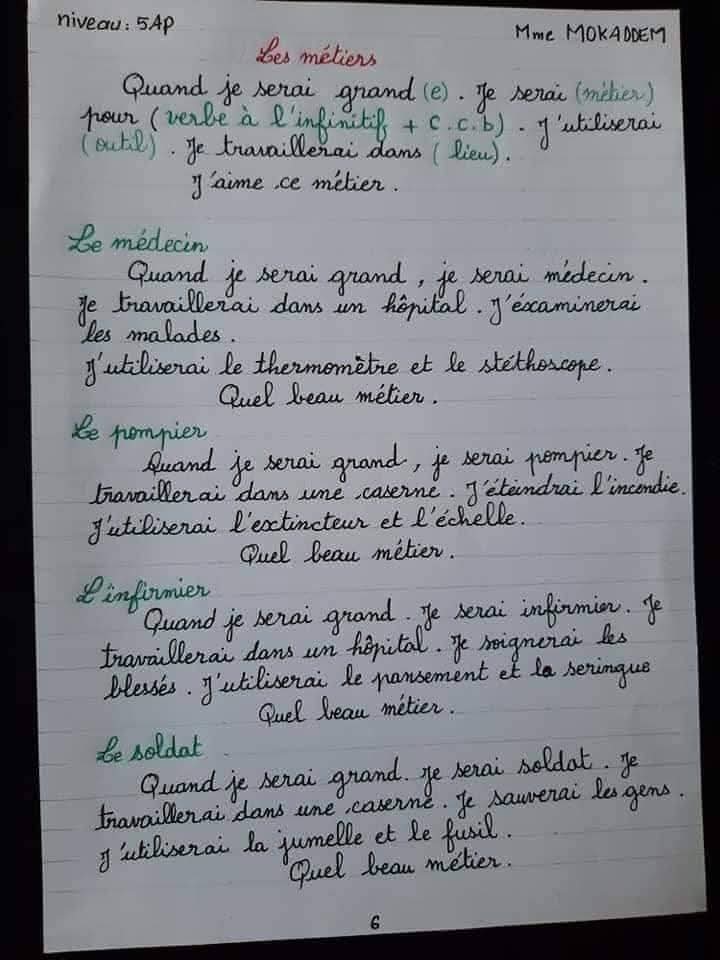 niveau : 5AP
Mme MOKADDEM
Les métiers
Quand je serai grand (e) . Je serai (métier)
pour ( verbe à l'infinitif + C.c.b) . J'utiliserai
(outil) . Je travaillerai dans ( lieu) .
J'aime ce métier .
Le médecin
Quand je serai grand , je serai médecin .
Je travaillerai dans un hôpital . J'éxaminerai
les malades .
J'utiliserai le thermomètre et le stéthoscope .
Quel beau métier .
Le pompier
Quand je serai grand , je serai pompier . Je
travaillerai dans une caserne . J'éteindrai l'incendie .
J'utiliserai l'extincteur et l'échelle .
Quel beau métier .
L'infirmier
Quand je serai grand . Je serai infirmier . Je
travaillerai dans un hôpital . Je soignerai les
blessés . J'utiliserai le pansement et la seringue
Quel beau métier .
Le soldat
Quand je serai grand . Je serai soldat . Je
travaillerai dans une caserne . Je sauverai les gens .
J'utiliserai la jumelle et le fusil .
Quel beau métier .
6